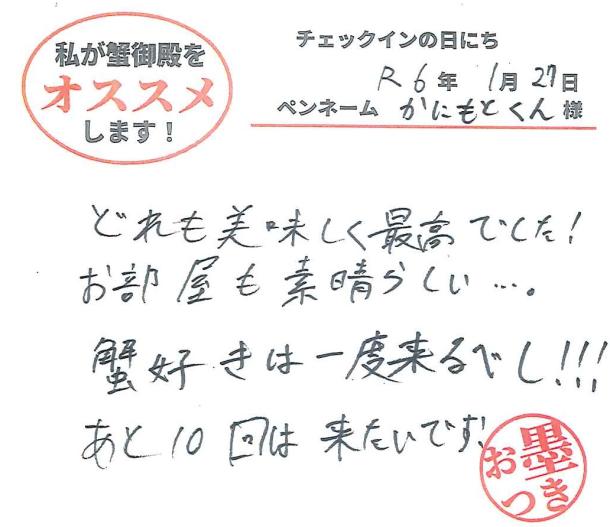 私が蟹御殿を
オススメ
します！
チェックインの日にち
R6年 1月27日
ペンネーム かにもとくん 様
どれも美味しく最高でした！
お部屋も素晴らしい…。
蟹好きは一度来るべし!!!
あと10回は来たいです！
お墨
つき